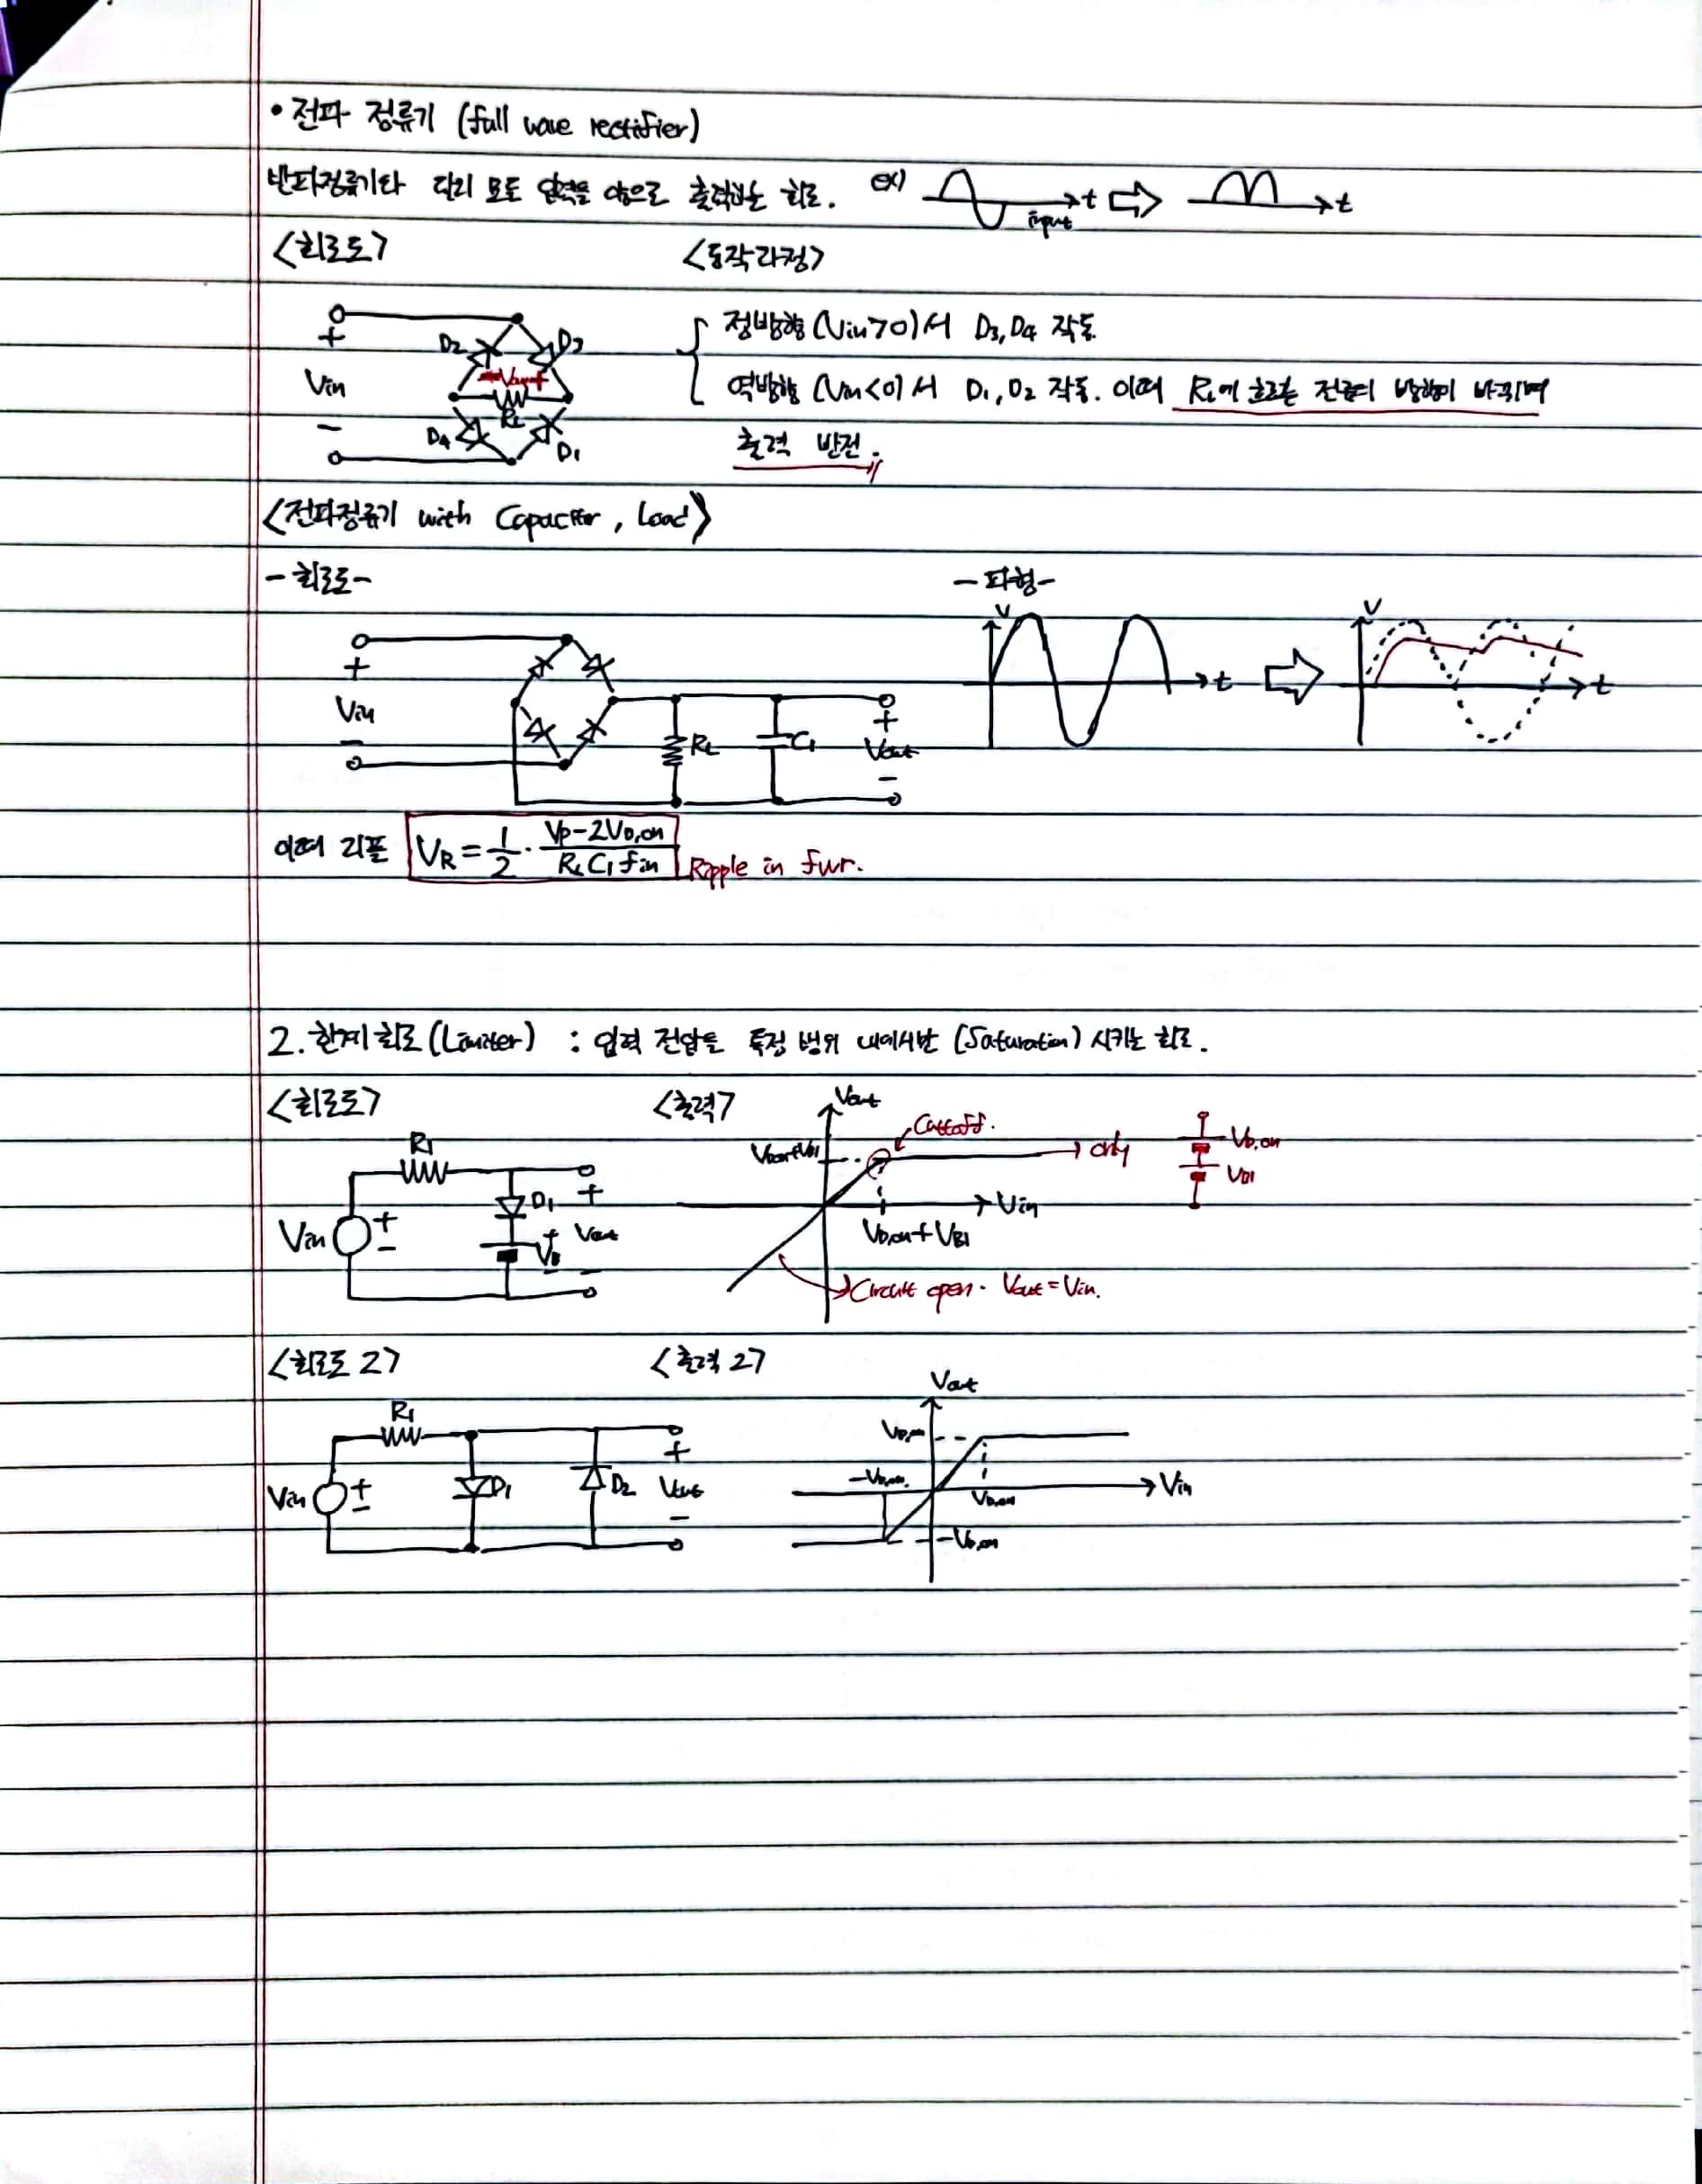 • 전파 정류기 (full wave rectifier)
반파정류기와 달리 모든 입력을 양으로 출력하는 회로. ex) t input t
<회로도> <동작과정>
정방향 (Vin>0)서 D3, D4 작동
역방향 (Vin<0)서 D1, D2 작동. 이때 RL에 흐르는 전류의 방향이 바뀌며
출력 반전.
+ Vin − D2 D3 Vout RL D4 D1
<전파정류기 with Capacitor, Load>
-회로도- -파형-
+ Vin − RL C1 + Vout −
V t V t
이때 리플 VR = 1/2 · (Vp−2VD,on)/(RL C1 fin) Ripple in fwr.
2. 한계 회로 (Limiter) : 입력 전압을 특정 범위 내에서만 (Saturation) 시키는 회로.
<회로도> <출력>
R1 Vin + − D1 + VB − + Vout −
Vout Cuttoff. only VD,on VB1
Vin VD,on+VB1
Circuit open. Vout=Vin.
<회로도 2> <출력 2>
R1 Vin + − D1 D2 + Vout −
Vout VD,on −VD,on VD,on Vin −VD,on